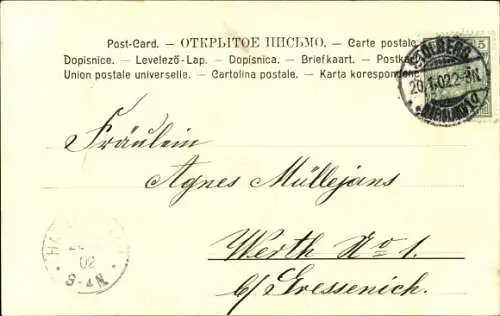 Post-Card. — ОТКРЫТОЕ ПИСЬМО. — Carte postale
Dopisnice. — Levelező-Lap. — Dopisnica. — Briefkaart. — Postkar
Union postale universelle. — Cartolina postale. — Karta korespondenc
5
STOLBERG
20. 02 2-3N
Fräulein
Agnes Müllejans
Werth No 1.
b/Gressenich.
02
3-4N